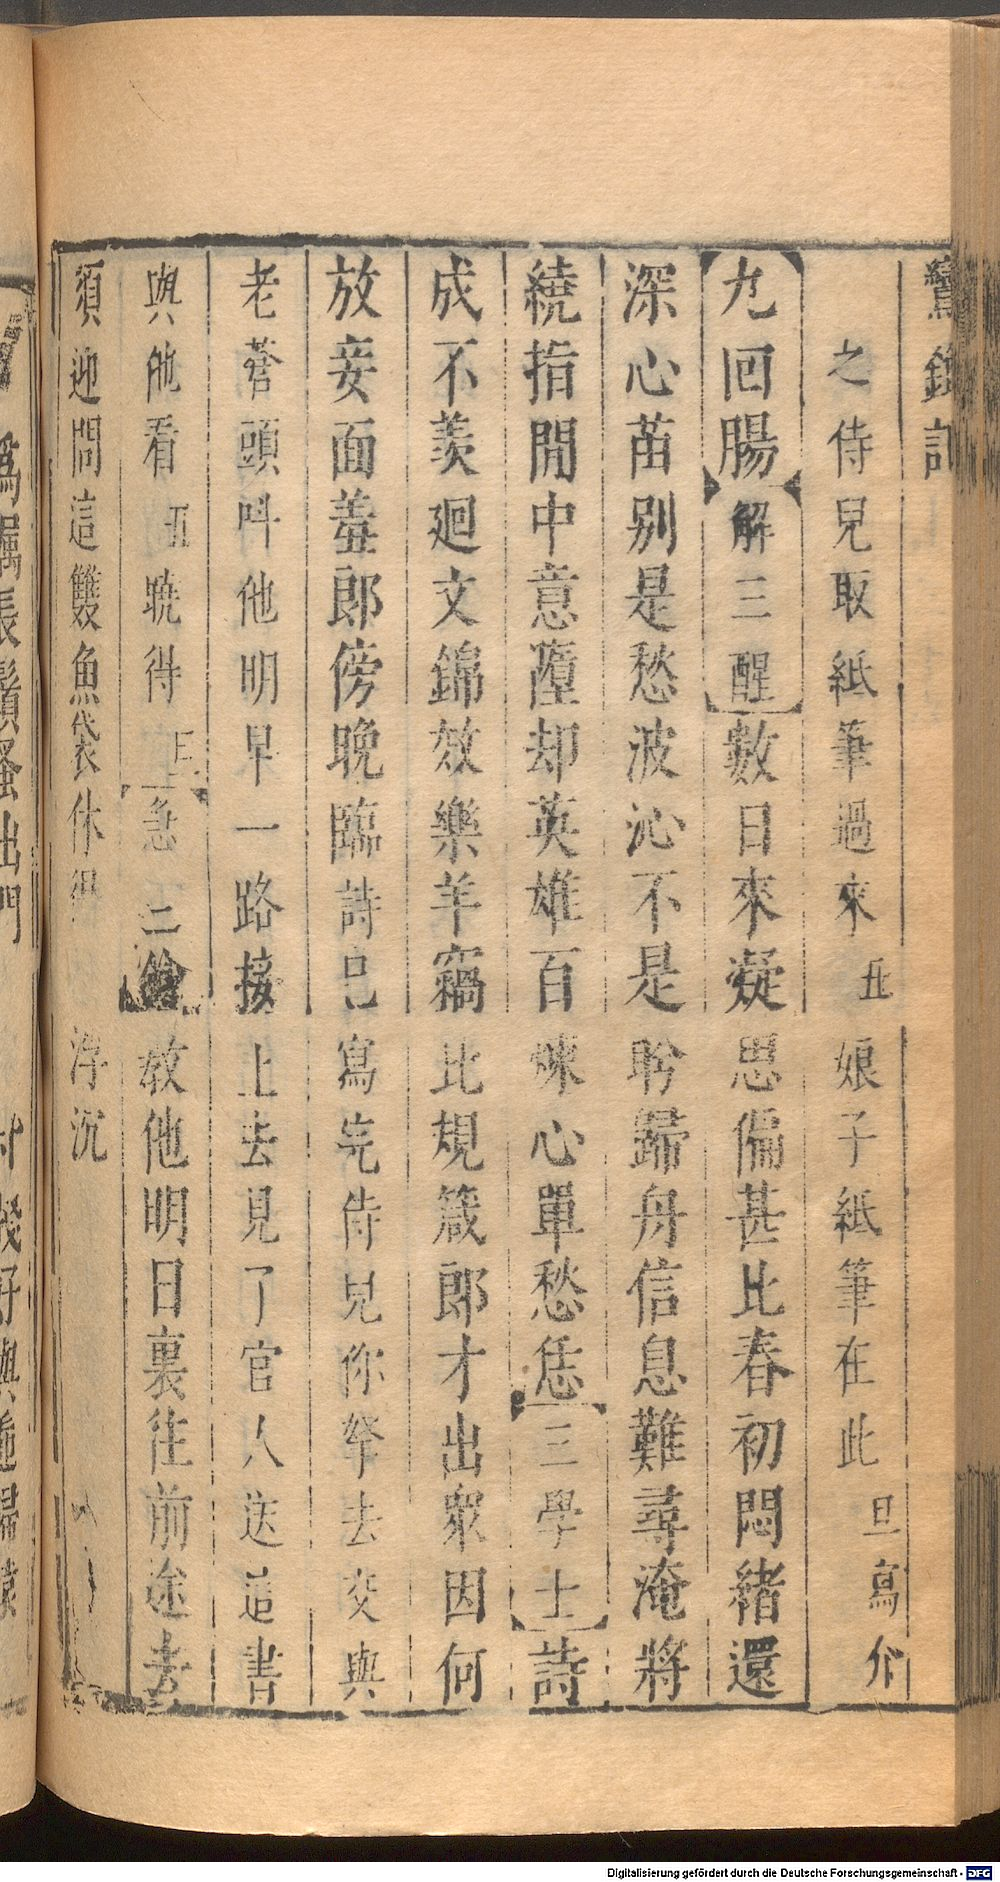 鸞鎞記
之侍兒取紙筆過來丑娘子紙筆在此旦寫介
九回腸解三酲數日來凝思偏甚比春初悶緒還
深心苗别是愁波沁不是盼歸舟信息難尋淹將
繞指閒中意蘁却英雄百煉心單愁恁三學士詩
成不羨廻文錦效樂羊竊比規箴郎才出衆因何
放妾面羞郎傍晚臨詩已寫完侍兒你拏去交與
老蒼頭呌他明早一路接上去見了官人送這書
與他看丑曉得旦急三鎗教他明日裏往前途去
須迎問這雙魚袋休得浮沉
Digitalisierung gefördert durch die Deutsche Forschungsgemeinschaft - DFG